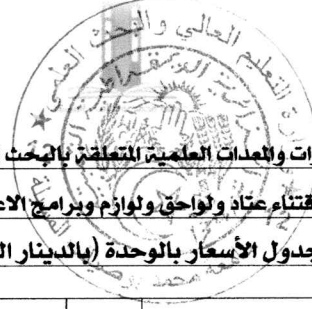 التعليم العالي والبحث العلمي
ات والمعدات العلمية المتعلقة بالبحث
قتناء عتاد ولواحق ولوازم وبرامج الاع
جدول الأسعار بالوحدة (بالدينار ال
محمد بوضياف